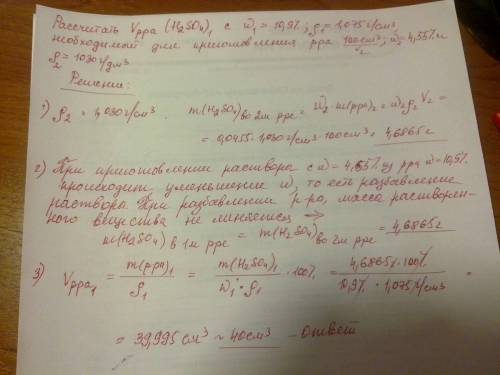 Рассчитать Vрра (H₂SO₄)₁ с ω₁ = 10,9%; ρ₁ = 1,075 г/см³,
необходимой для приготовления рра 100см³; ω₂ = 4,55% и
V₂
ρ₂ = 1030 г/дм³
Решение:
1) ρ₂ = 1,030 г/см³. m(H₂SO₄) во 2м рре = ω₂ · m(рра)₂ = ω₂ρ₂V₂ =
= 0,0455 · 1,030 г/см³ · 100см³ = 4,6865 г
2) При приготовлении раствора с ω = 4,55% из рра ω = 10,9%
происходит уменьшение ω, то есть разбавление
раствора. При разбавлении р-ро, масса растворен-
ного вещества не меняется ⇒
m(H₂SO₄) в 1м рре = m(H₂SO₄) во 2м рре = 4,6865 г
3) Vрра₁ = m(рра)₁ / ρ₁ = m(H₂SO₄)₁ / ω₁ · ρ₁ · 100% = 4,6865г · 100% / 10,9% · 1,075 г/см³ =
= 39,995 см³ ≈ 40см³ - ответ